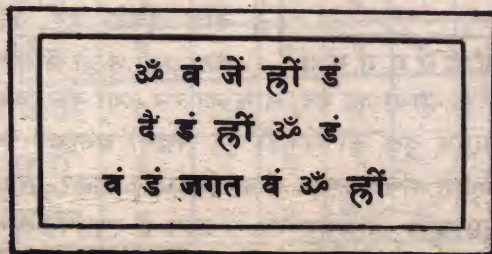 ॐ वं जें ह्लीं डं
वैं डं ह्लीं ॐ डं
वं डं जगत वं ॐ ह्लीं